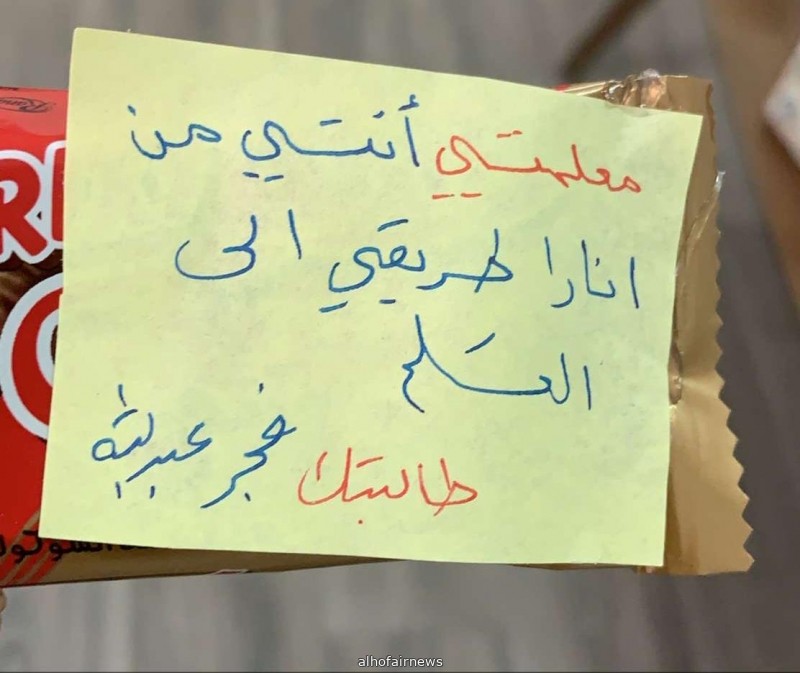 معلمتي أنتي من
انارا طريقي الى
العلم
طالبتك فجر عبدالله
alhofairnews